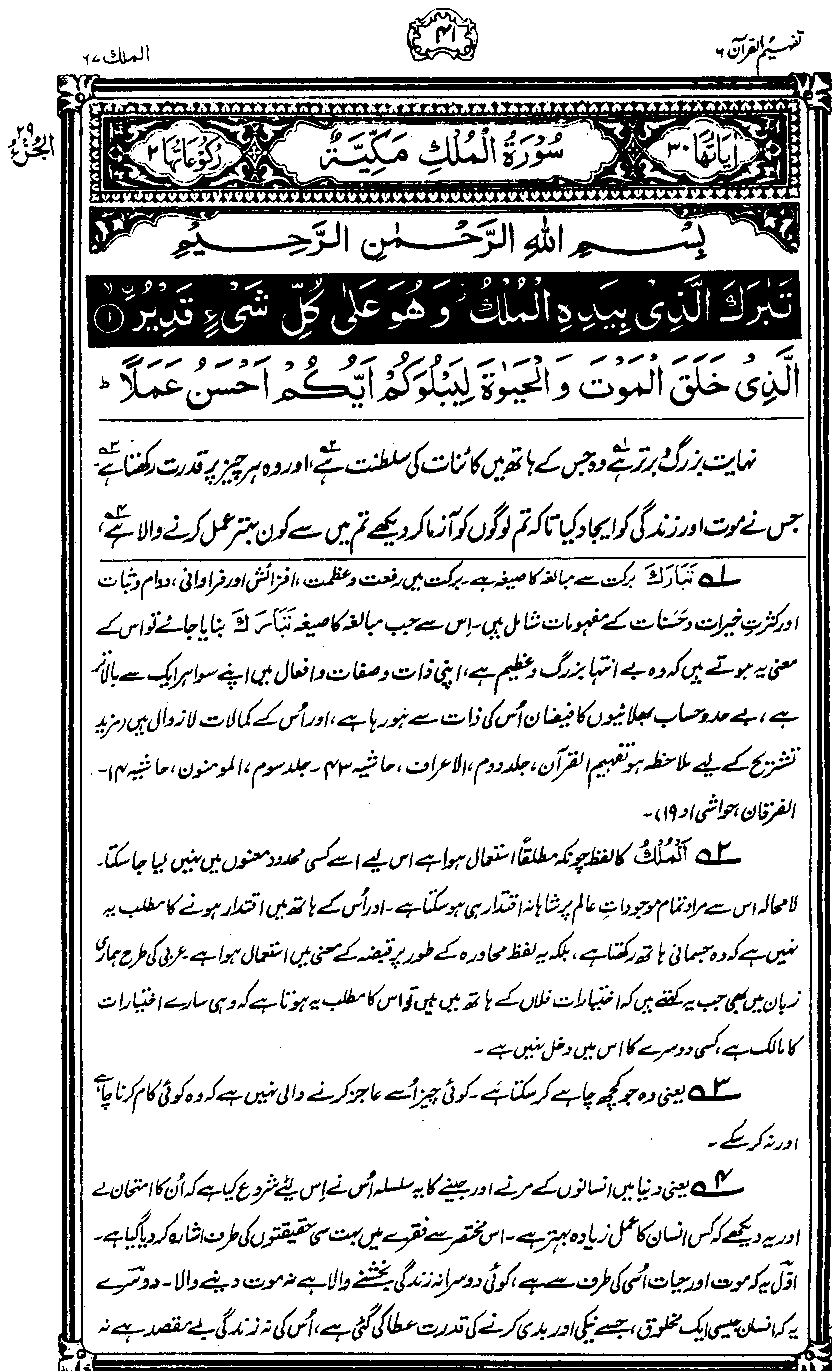 تفہیم القرآن ۶
۴۱
الملک ۶۷
الجزء ۲۹
اٰیاتها ۳۰
سُوْرَةُ الْمُلْكِ مَكِّيَّةٌ
رُكُوْعَاتُها ۲
بِسْمِ اللّٰهِ الرَّحْمٰنِ الرَّحِيْمِ
تَبٰرَكَ الَّذِیْ بِیَدِهِ الْمُلْكُ ز وَهُوَ عَلٰی كُلِّ شَیْءٍ قَدِیْرُۨ ۙ ﴿۱﴾
الَّذِیْ خَلَقَ الْمَوْتَ وَالْحَیٰوةَ لِیَبْلُوَكُمْ اَیُّكُمْ اَحْسَنُ عَمَلًا ؕ
نہایت بزرگ و برتر ہے۱؎ وہ جس کے ہاتھ میں کائنات کی سلطنت ہے۲؎، اور وہ ہر چیز پر قدرت رکھتا ہے۳؎۔
جس نے موت اور زندگی کو ایجاد کیا تاکہ تم لوگوں کو آزما کر دیکھے تم میں سے کون بہتر عمل کرنے والا ہے۴؎،
۱؎ تَبَارَكَ برکت سے مبالغہ کا صیغہ ہے۔ برکت میں رفعت و عظمت، افزائش اور فراوانی، دوام و ثبات
اور کثرتِ خیرات و حَسَنات کے مفہومات شامل ہیں۔ اِس سے جب مبالغہ کا صیغہ تَبَارَكَ بنایا جائے تو اس کے
معنی یہ ہوتے ہیں کہ وہ بے انتہا بزرگ و عظیم ہے، اپنی ذات و صفات و افعال میں اپنے سوا ہر ایک سے بالاتر
ہے، بے حد و حساب بھلائیوں کا فیضان اُس کی ذات سے ہو رہا ہے، اور اُس کے کمالات لازوال ہیں (مزید
تشریح کے لیے ملاحظہ ہو تفہیم القرآن، جلد دوم، الاعراف، حاشیہ ۴۳۔ جلد سوم، المومنون، حاشیہ ۱۴۔
الفرقان، حواشی ۱و ۱۹)۔
۲؎ اَلْمُلْكُ کا لفظ چونکہ مطلقًا استعمال ہوا ہے اس لیے اسے کسی محدود معنوں میں نہیں لیا جا سکتا۔
لامحالہ اس سے مراد تمام موجوداتِ عالم پر شاہانہ اقتدار ہی ہو سکتا ہے۔ اور اُس کے ہاتھ میں اقتدار ہونے کا مطلب یہ
نہیں ہے کہ وہ جسمانی ہاتھ رکھتا ہے، بلکہ یہ لفظ محاورہ کے طور پر قبضہ کے معنی میں استعمال ہوا ہے۔ عربی کی طرح ہماری
زبان میں بھی جب یہ کہتے ہیں کہ اختیارات فلاں کے ہاتھ میں ہیں تو اس کا مطلب یہ ہوتا ہے کہ وہی سارے اختیارات
کا مالک ہے، کسی دوسرے کا اس میں دخل نہیں ہے۔
۳؎ یعنی وہ جو کچھ چاہے کر سکتا ہے۔ کوئی چیز اُسے عاجز کرنے والی نہیں ہے کہ وہ کوئی کام کرنا چاہے
اور نہ کر سکے۔
۴؎ یعنی دنیا میں انسانوں کے مرنے اور جینے کا یہ سلسلہ اُس نے اِس لئے شروع کیا ہے کہ اُن کا امتحان لے
اور یہ دیکھے کہ کس انسان کا عمل زیادہ بہتر ہے۔ اس مختصر سے فقرے میں بہت سی حقیقتوں کی طرف اشارہ کر دیا گیا ہے۔
اوّل یہ کہ موت اور حیات اُسی کی طرف سے ہے، کوئی دوسرا نہ زندگی بخشنے والا ہے نہ موت دینے والا۔ دوسرے
یہ کہ انسان جیسی ایک مخلوق، جسے نیکی اور بدی کرنے کی قدرت عطا کی گئی ہے، اُس کی نہ زندگی بے مقصد ہے نہ